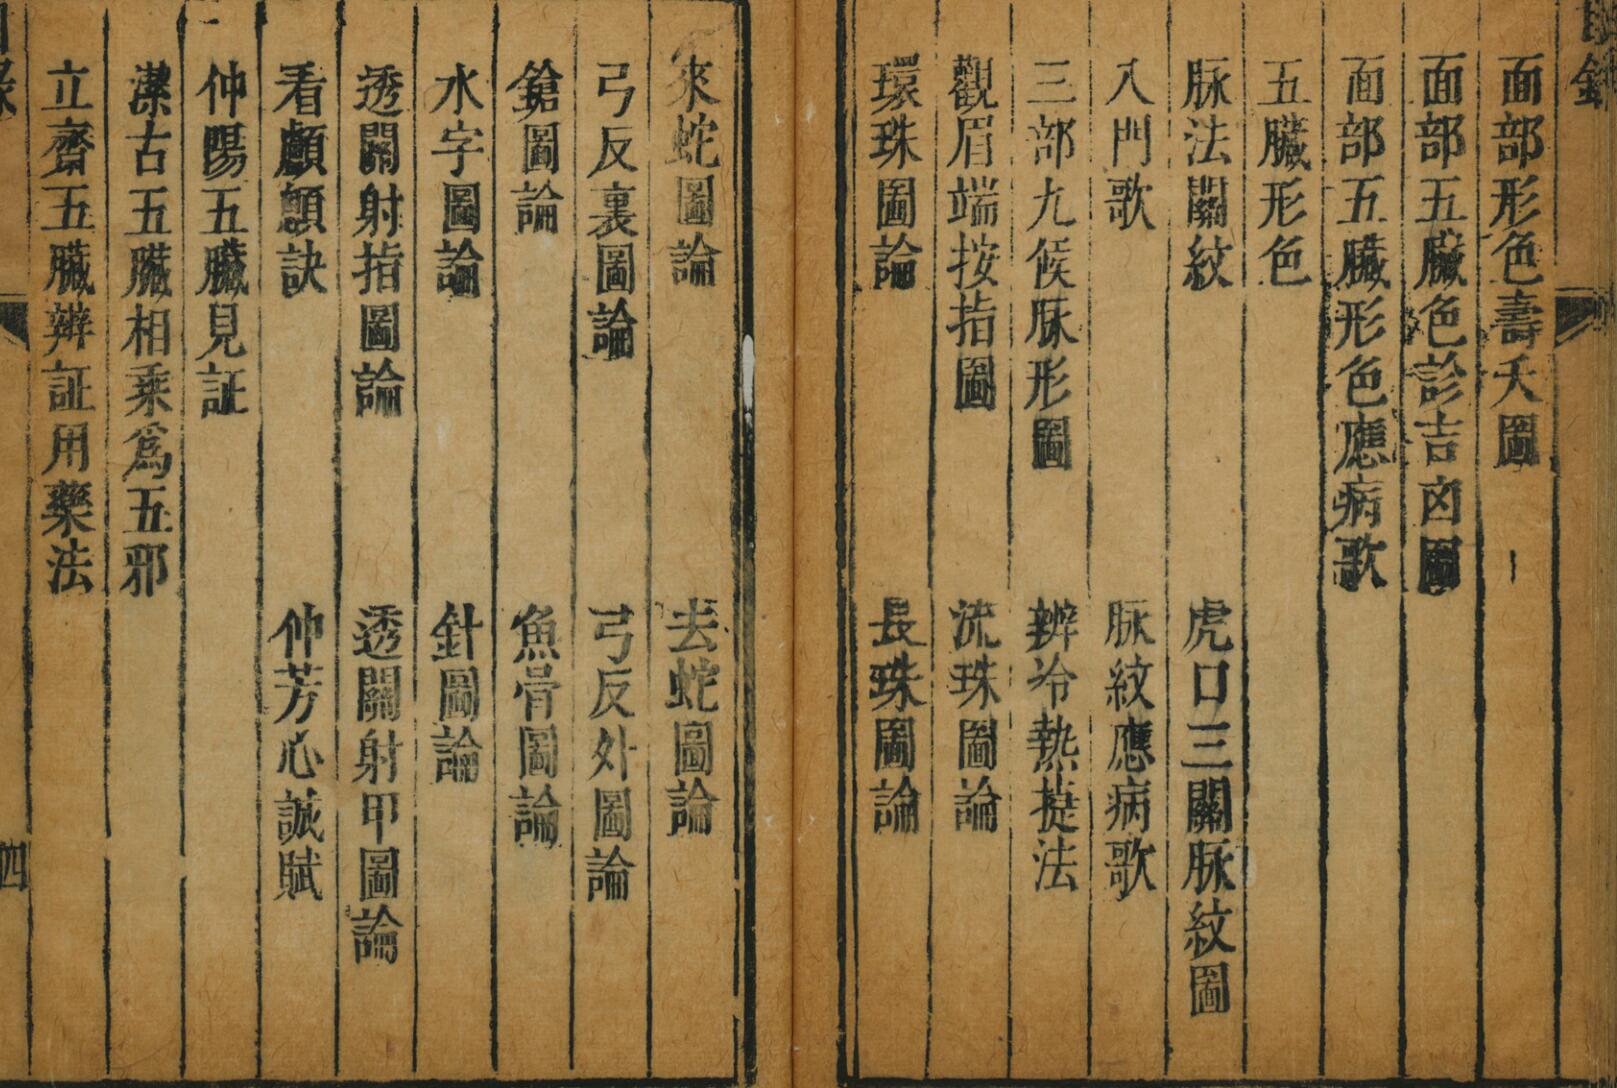 面部形色壽夭圖
面部五臟色診吉凶圖
面部五臟形色應病歌
五臟形色
脉法關紋 虎口三關脉紋圖
入門歌 脉紋應病歌
三部九候脉形圖 辨冷熱㨗法
觀眉端按指圖 流珠圖論
環珠圖論 長珠圖論
來蛇圖論 去蛇圖論
弓反裏圖論 弓反外圖論
鎗圖論 魚骨圖論
水字圖論 針圖論
透關射指圖論 透關射甲圖論
看顱顖訣 仲芳心誠賦
仲陽五臟見証
潔古五臟相乘爲五邪
立齋五臟辨証用藥法
四